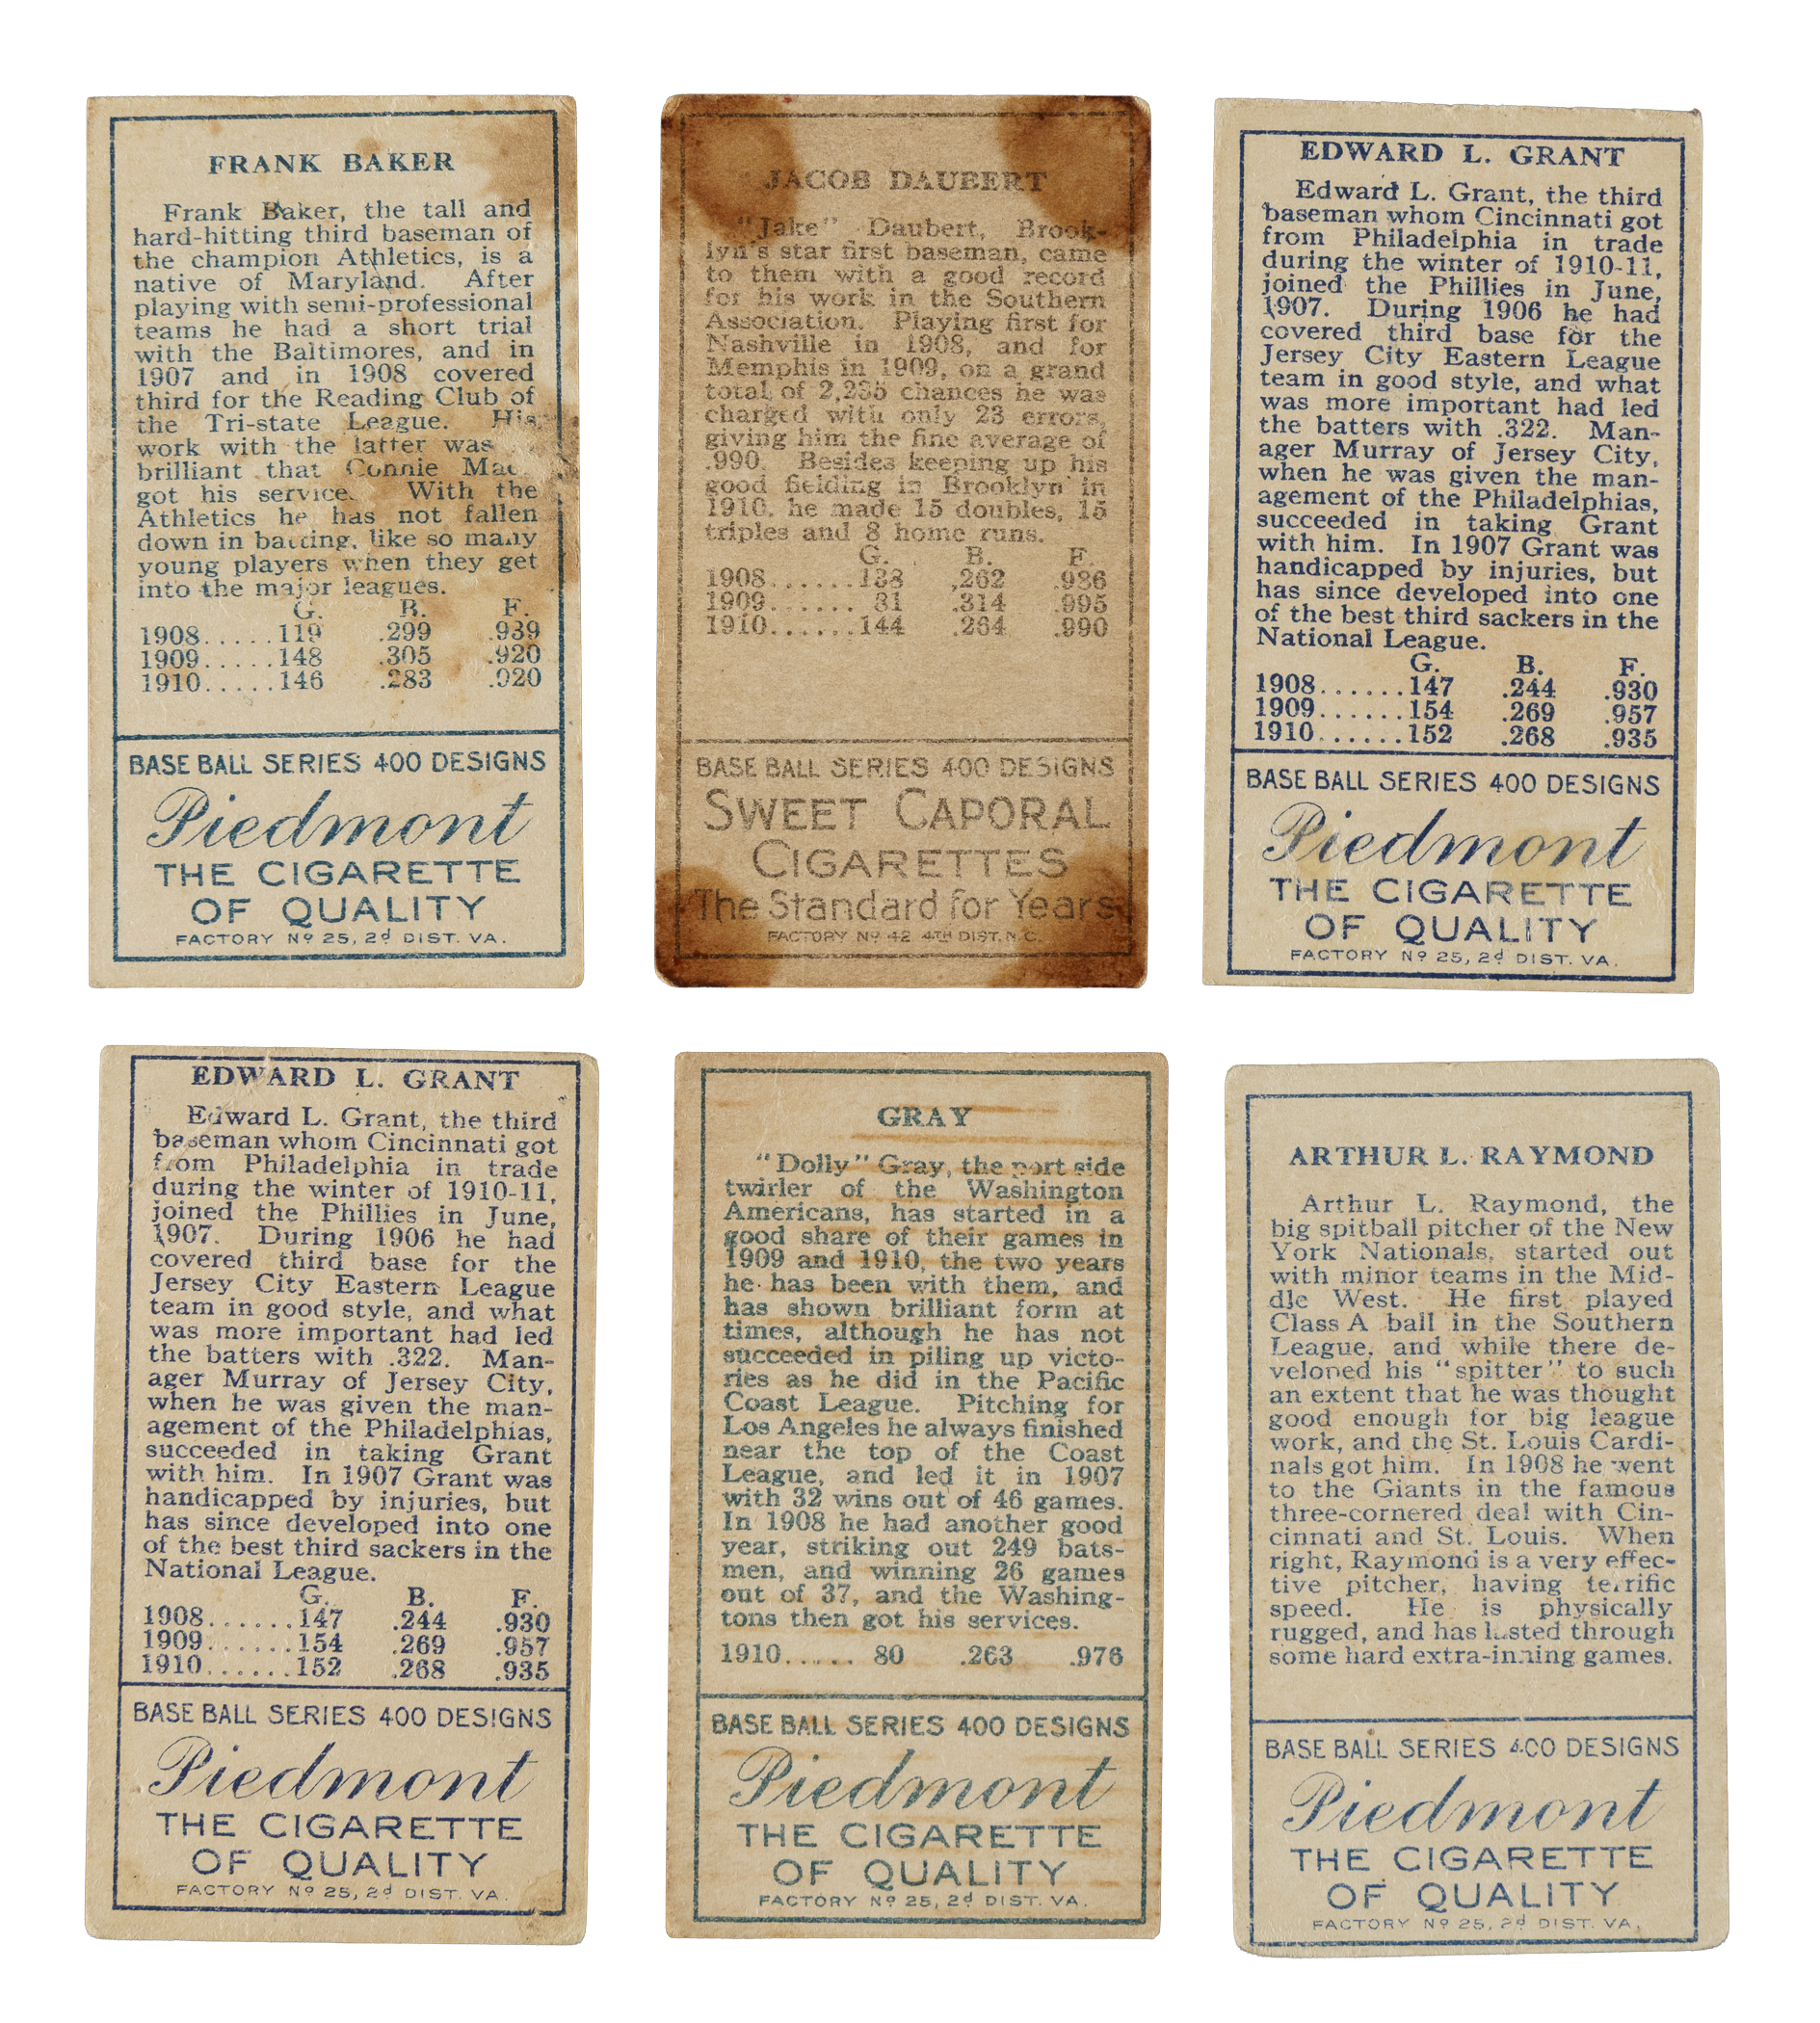 FRANK BAKER
Frank Baker, the tall and
hard-hitting third baseman of
the champion Athletics, is a
native of Maryland. After
playing with semi-professional
teams he had a short trial
with the Baltimores, and in
1907 and in 1908 covered
third for the Reading Club of
the Tri-state League. His
work with the latter was
brilliant that Connie
got his With the
Athletics he has not fallen
down in batting, like so many
young players when they get
into the major leagues.
G. B. F.
1908.....119 .299 .939
1909.....148 .305 .920
1910.....146 .283 .920
BASE BALL SERIES 400 DESIGNS
Piedmont
THE CIGARETTE
OF QUALITY
FACTORY No 25, 2d DIST. VA.
JACOB DAUBERT
"Jake" Daubert, Brook-
lyn's star first baseman, came
to them with a good record
for his work in the Southern
Association. Playing first for
Nashville in 1908, and for
Memphis in 1909, on a grand
total of 2,235 chances he was
charged with only 23 errors,
giving him the fine average of
.990. Besides keeping up his
good fielding in Brooklyn in
1910, he made 15 doubles, 15
triples and 8 home runs.
G. B. F.
1908......138 .262 .986
1909....... 81 .314 .995
1910......144 .264 .990
BASE BALL SERIES 400 DESIGNS
SWEET CAPORAL
CIGARETTES
The Standard for Years
FACTORY No 42 4TH DIST. N.C.
EDWARD L. GRANT
Edward L. Grant, the third
baseman whom Cincinnati got
from Philadelphia in trade
during the winter of 1910-11,
joined the Phillies in June,
1907. During 1906 he had
covered third base for the
Jersey City Eastern League
team in good style, and what
was more important had led
the batters with .322. Man-
ager Murray of Jersey City,
when he was given the man-
agement of the Philadelphias,
succeeded in taking Grant
with him. In 1907 Grant was
handicapped by injuries, but
has since developed into one
of the best third sackers in the
National League.
G. B. F.
1908......147 .244 .930
1909......154 .269 .957
1910......152 .268 .935
BASE BALL SERIES 400 DESIGNS
Piedmont
THE CIGARETTE
OF QUALITY
FACTORY No 25, 2d DIST. VA.
EDWARD L. GRANT
Edward L. Grant, the third
baseman whom Cincinnati got
from Philadelphia in trade
during the winter of 1910-11,
joined the Phillies in June,
1907. During 1906 he had
covered third base for the
Jersey City Eastern League
team in good style, and what
was more important had led
the batters with .322. Man-
ager Murray of Jersey City,
when he was given the man-
agement of the Philadelphias,
succeeded in taking Grant
with him. In 1907 Grant was
handicapped by injuries, but
has since developed into one
of the best third sackers in the
National League.
G. B. F.
1908.......147 .244 .930
1909.......154 .269 .957
1910.......152 .268 .935
BASE BALL SERIES 400 DESIGNS
Piedmont
THE CIGARETTE
OF QUALITY
FACTORY No 25, 2d DIST. VA.
GRAY
"Dolly" Gray, the port side
twirler of the Washington
Americans, has started in a
good share of their games in
1909 and 1910, the two years
he has been with them, and
has shown brilliant form at
times, although he has not
succeeded in piling up victo-
ries as he did in the Pacific
Coast League. Pitching for
Los Angeles he always finished
near the top of the Coast
League, and led it in 1907
with 32 wins out of 46 games.
In 1908 he had another good
year, striking out 249 bats-
men, and winning 26 games
out of 37, and the Washing-
tons then got his services.
1910..... 80 .263 .976
BASE BALL SERIES 400 DESIGNS
Piedmont
THE CIGARETTE
OF QUALITY
FACTORY No 25, 2d DIST. VA.
ARTHUR L. RAYMOND
Arthur L. Raymond, the
big spitball pitcher of the New
York Nationals, started out
with minor teams in the Mid-
dle West. He first played
Class A ball in the Southern
League, and while there de-
veloped his "spitter" to such
an extent that he was thought
good enough for big league
work, and the St. Louis Cardi-
nals got him. In 1908 he went
to the Giants in the famous
three-cornered deal with Cin-
cinnati and St. Louis. When
right, Raymond is a very effec-
tive pitcher, having terrific
speed. He is physically
rugged, and has lasted through
some hard extra-inning games.
BASE BALL SERIES 400 DESIGNS
Piedmont
THE CIGARETTE
OF QUALITY
FACTORY No 25, 2d DIST. VA.